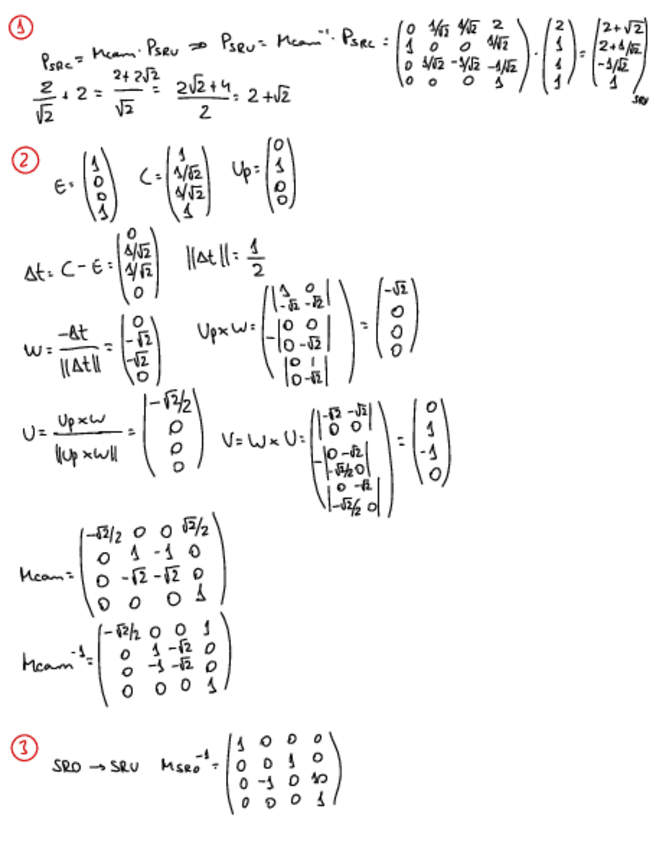 ①
P_SRC = Mcam · P_SRU ⇒ P_SRU = Mcam⁻¹ · P_SRC = (0 1/√2 1/√2 2; 1 0 0 1/√2; 0 1/√2 -1/√2 -1/√2; 0 0 0 1) · (2; 1; 1; 1) = (2+√2; 2+1/√2; -1/√2; 1)SRU
2/√2 + 2 = (2+2√2)/√2 = (2√2+4)/2 = 2+√2
②
E = (1; 0; 0; 1) C = (1; 1/√2; 1/√2; 1) Up = (0; 1; 0; 0)
Δt = C - E = (0; 1/√2; 1/√2; 0) ||Δt|| = 1/2
W = -Δt/||Δt|| = (0; -√2; -√2; 0) Up×W = (|1 0; -√2 -√2|; -|0 0; 0 -√2|; |0 1; 0 -√2|) = (-√2; 0; 0; 0)
U = Up×W/||Up×W|| = (-√2/2; 0; 0; 0) V = W × U = (|-√2 -√2; 0 0|; -|0 -√2; -√2/2 0|; |0 -√2; -√2/2 0|) = (0; 1; -1; 0)
Mcam = (-√2/2 0 0 √2/2; 0 1 -1 0; 0 -√2 -√2 0; 0 0 0 1)
Mcam⁻¹ = (-√2/2 0 0 1; 0 1 -√2 0; 0 -1 -√2 0; 0 0 0 1)
③
SRO → SRU M_SRO⁻¹ = (1 0 0 0; 0 0 1 0; 0 -1 0 10; 0 0 0 1)